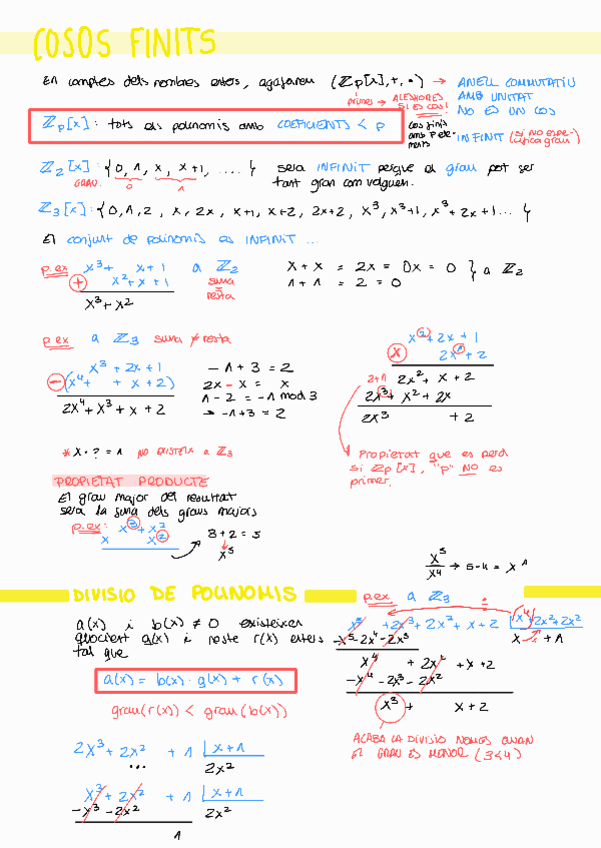 COSOS FINITS
En comptes dels nombres enters, agafarem (Zp[x],+,•) → ANELL COMMUTATIU
AMB UNITAT
NO ÉS UN COS
primer → ALESHORES SI ES COS!
Zp[x]: tots els polinomis amb COEFICIENTS < p
cos finit amb p elements
INFINIT (si no especifica grau)
Z2[x]: {0, 1, x, x+1, .... } seria INFINIT perquè el grau pot ser
tant gran com volguem.
GRAU: 0 1
Z3[x]: {0, 1, 2, x, 2x, x+1, x+2, 2x+2, x³, x³+1, x³+2x+1... }
El conjunt de polinomis és INFINIT ...
p.ex x³+ x+1 a Z2
+ x²+x+1 suma = resta
x³+x²
x+x = 2x = 0x = 0 } a Z2
1+1 = 2 = 0
p.ex a Z3 suma ≠ resta
x³+2x+1
−(x⁴+ +x+2)
2x⁴+x³+x+2
−1+3 = 2
2x−x = x
1−2 = −1 mod 3
→ −1+3 = 2
x²+2x+1
x 2x¹+2
2+1 2x²+x+2
2x³+x²+2x
2x³ +2
* x·? = 1 NO EXISTEIX a Z3
Propietat que es perd
si Zp[x], "p" NO és
primer.
PROPIETAT PRODUCTE
El grau major del resultat
serà la suma dels graus majors
p.ex: x³+x²
x x²
3+2=5
x⁵
x⁵/x⁴ → 5-4 = x¹
DIVISIÓ DE POLINOMIS
p.ex a Z3
a(x) i b(x) ≠ 0 existeixen
quocient q(x) i reste r(x) esters
tal que
a(x) = b(x)·q(x) + r(x)
grau(r(x)) < grau(b(x))
x⁵ +2x³+2x²+x+2 |x⁴+2x³+2x²
−x⁵−2x⁴−2x³ x → +1
x⁴ + 2x² +x+2
−x⁴−2x³−2x²
x³+ x+2
ACABA LA DIVISIÓ NOMÉS QUAN
EL GRAU ÉS MENOR (3<4)
2x³+2x² +1 |x+1
... 2x²
x³+2x² +1 |x+1
−x³−2x² 2x²
1